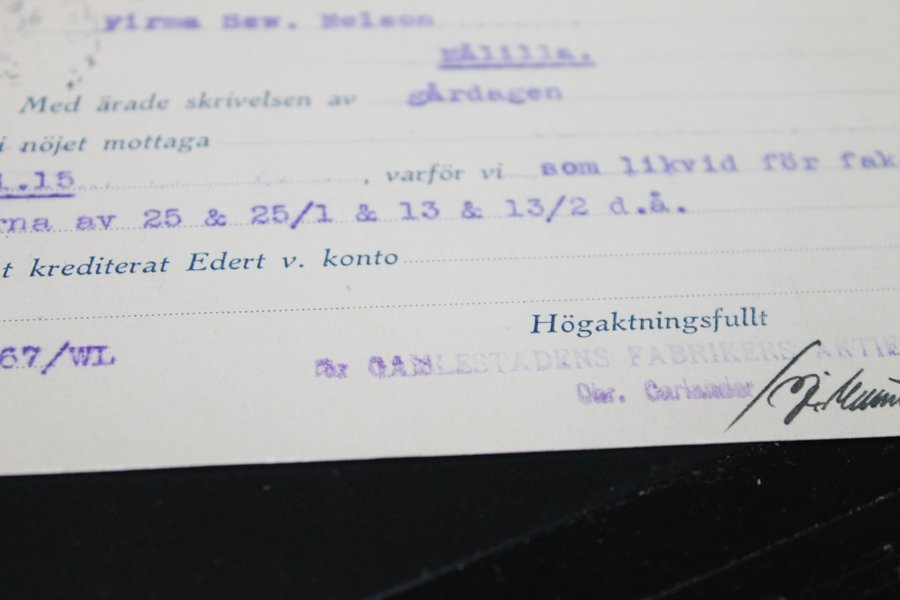 Firma Sew. Nelson
Målilla.
Med ärade skrivelsen av gårdagen
i nöjet mottaga
1.15, varför vi som likvid för fak
rna av 25 & 25/1 & 13 & 13/2 d.å.
t krediterat Edert v. konto
Högaktningsfullt
67/WL
för GAMLESTADENS FABRIKERS AKTIE
Chr. Carlander